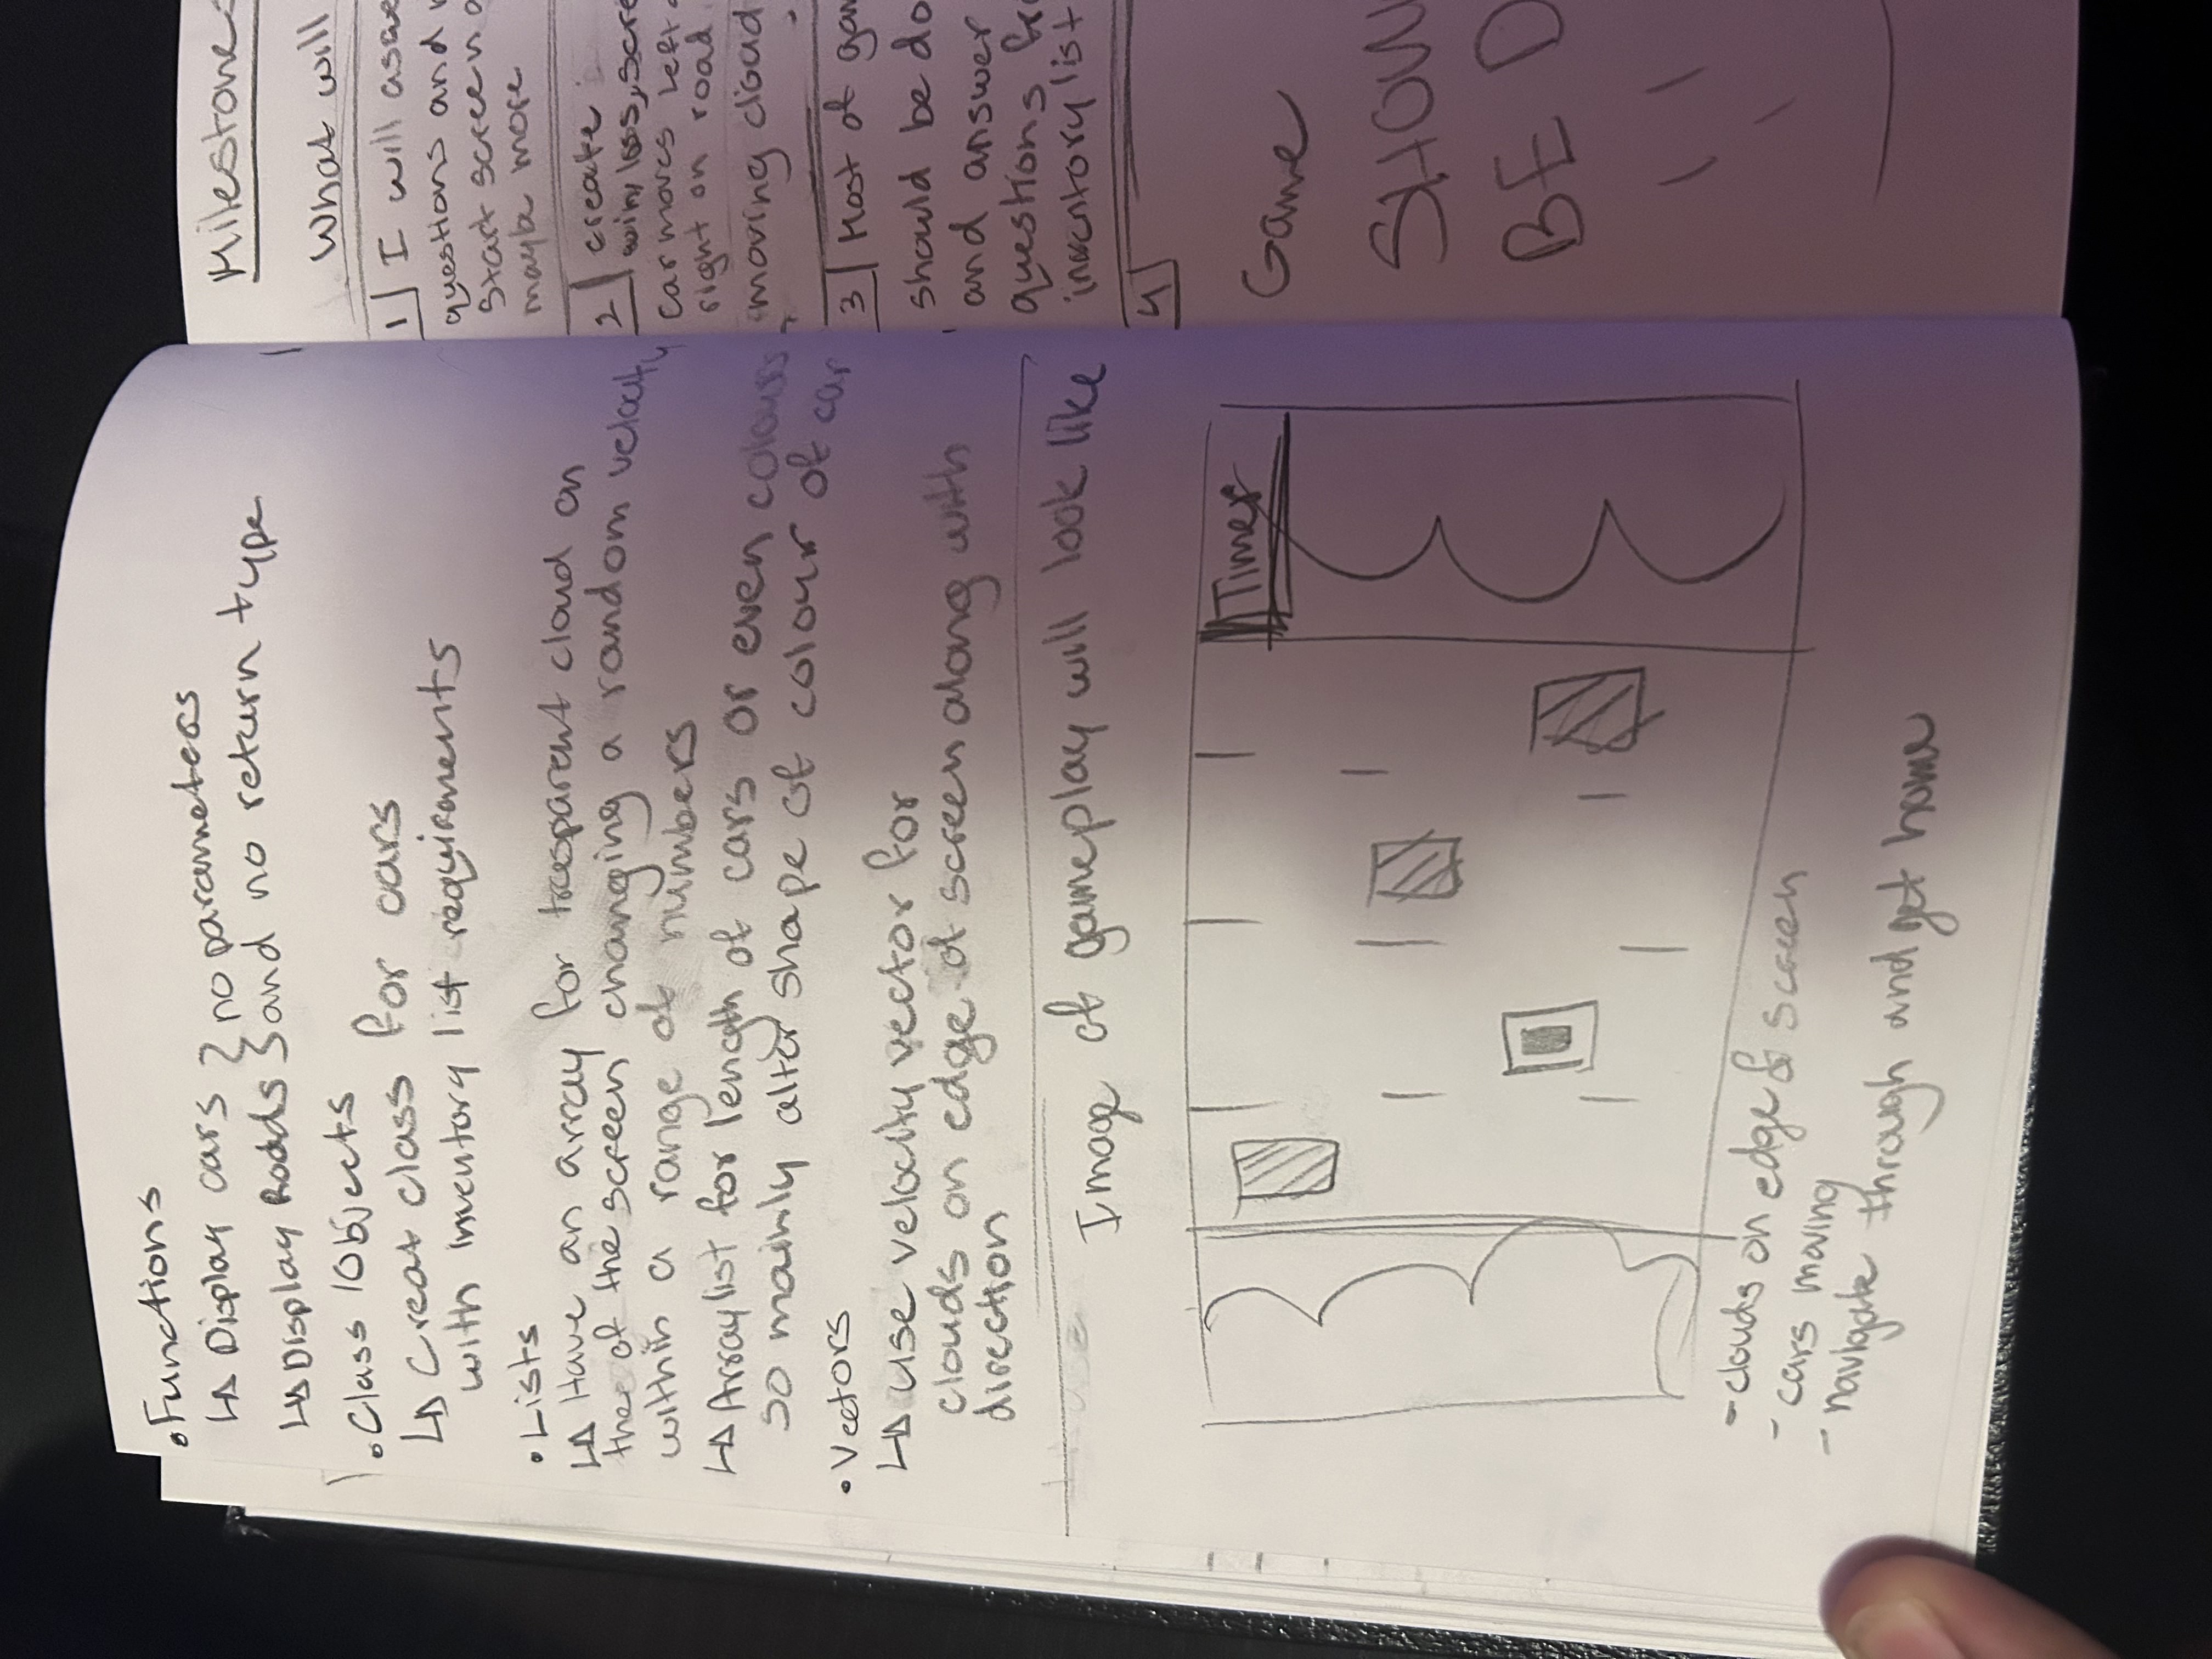 •Functions
↳ Display cars } no parameters
↳ Display Roads } and no return type
•Class /Objects
↳ Creat class for cars
with inventory list requirements
•Lists
↳ Have an array for trasparent cloud on
the of the screen changing a random velocity
within a range of numbers
↳ Arraylist for length of cars or even colours
so mainly alter shape of colour of car
•Vectors
↳ use velocity vector for
clouds on edge of screen along with
direction
Image of gameplay will look like
Timer
-clouds on edge of screen
- cars moving
- navigate through and get home
Milestones
What will
1 I will
questions and
Start screen
maybe more
2 create
win, loss, scre
car moves left
right on road
moving cloud
3 Most of gam
should be do
and answer
questions fr
inventory list
4
Game
SHOU
BE D